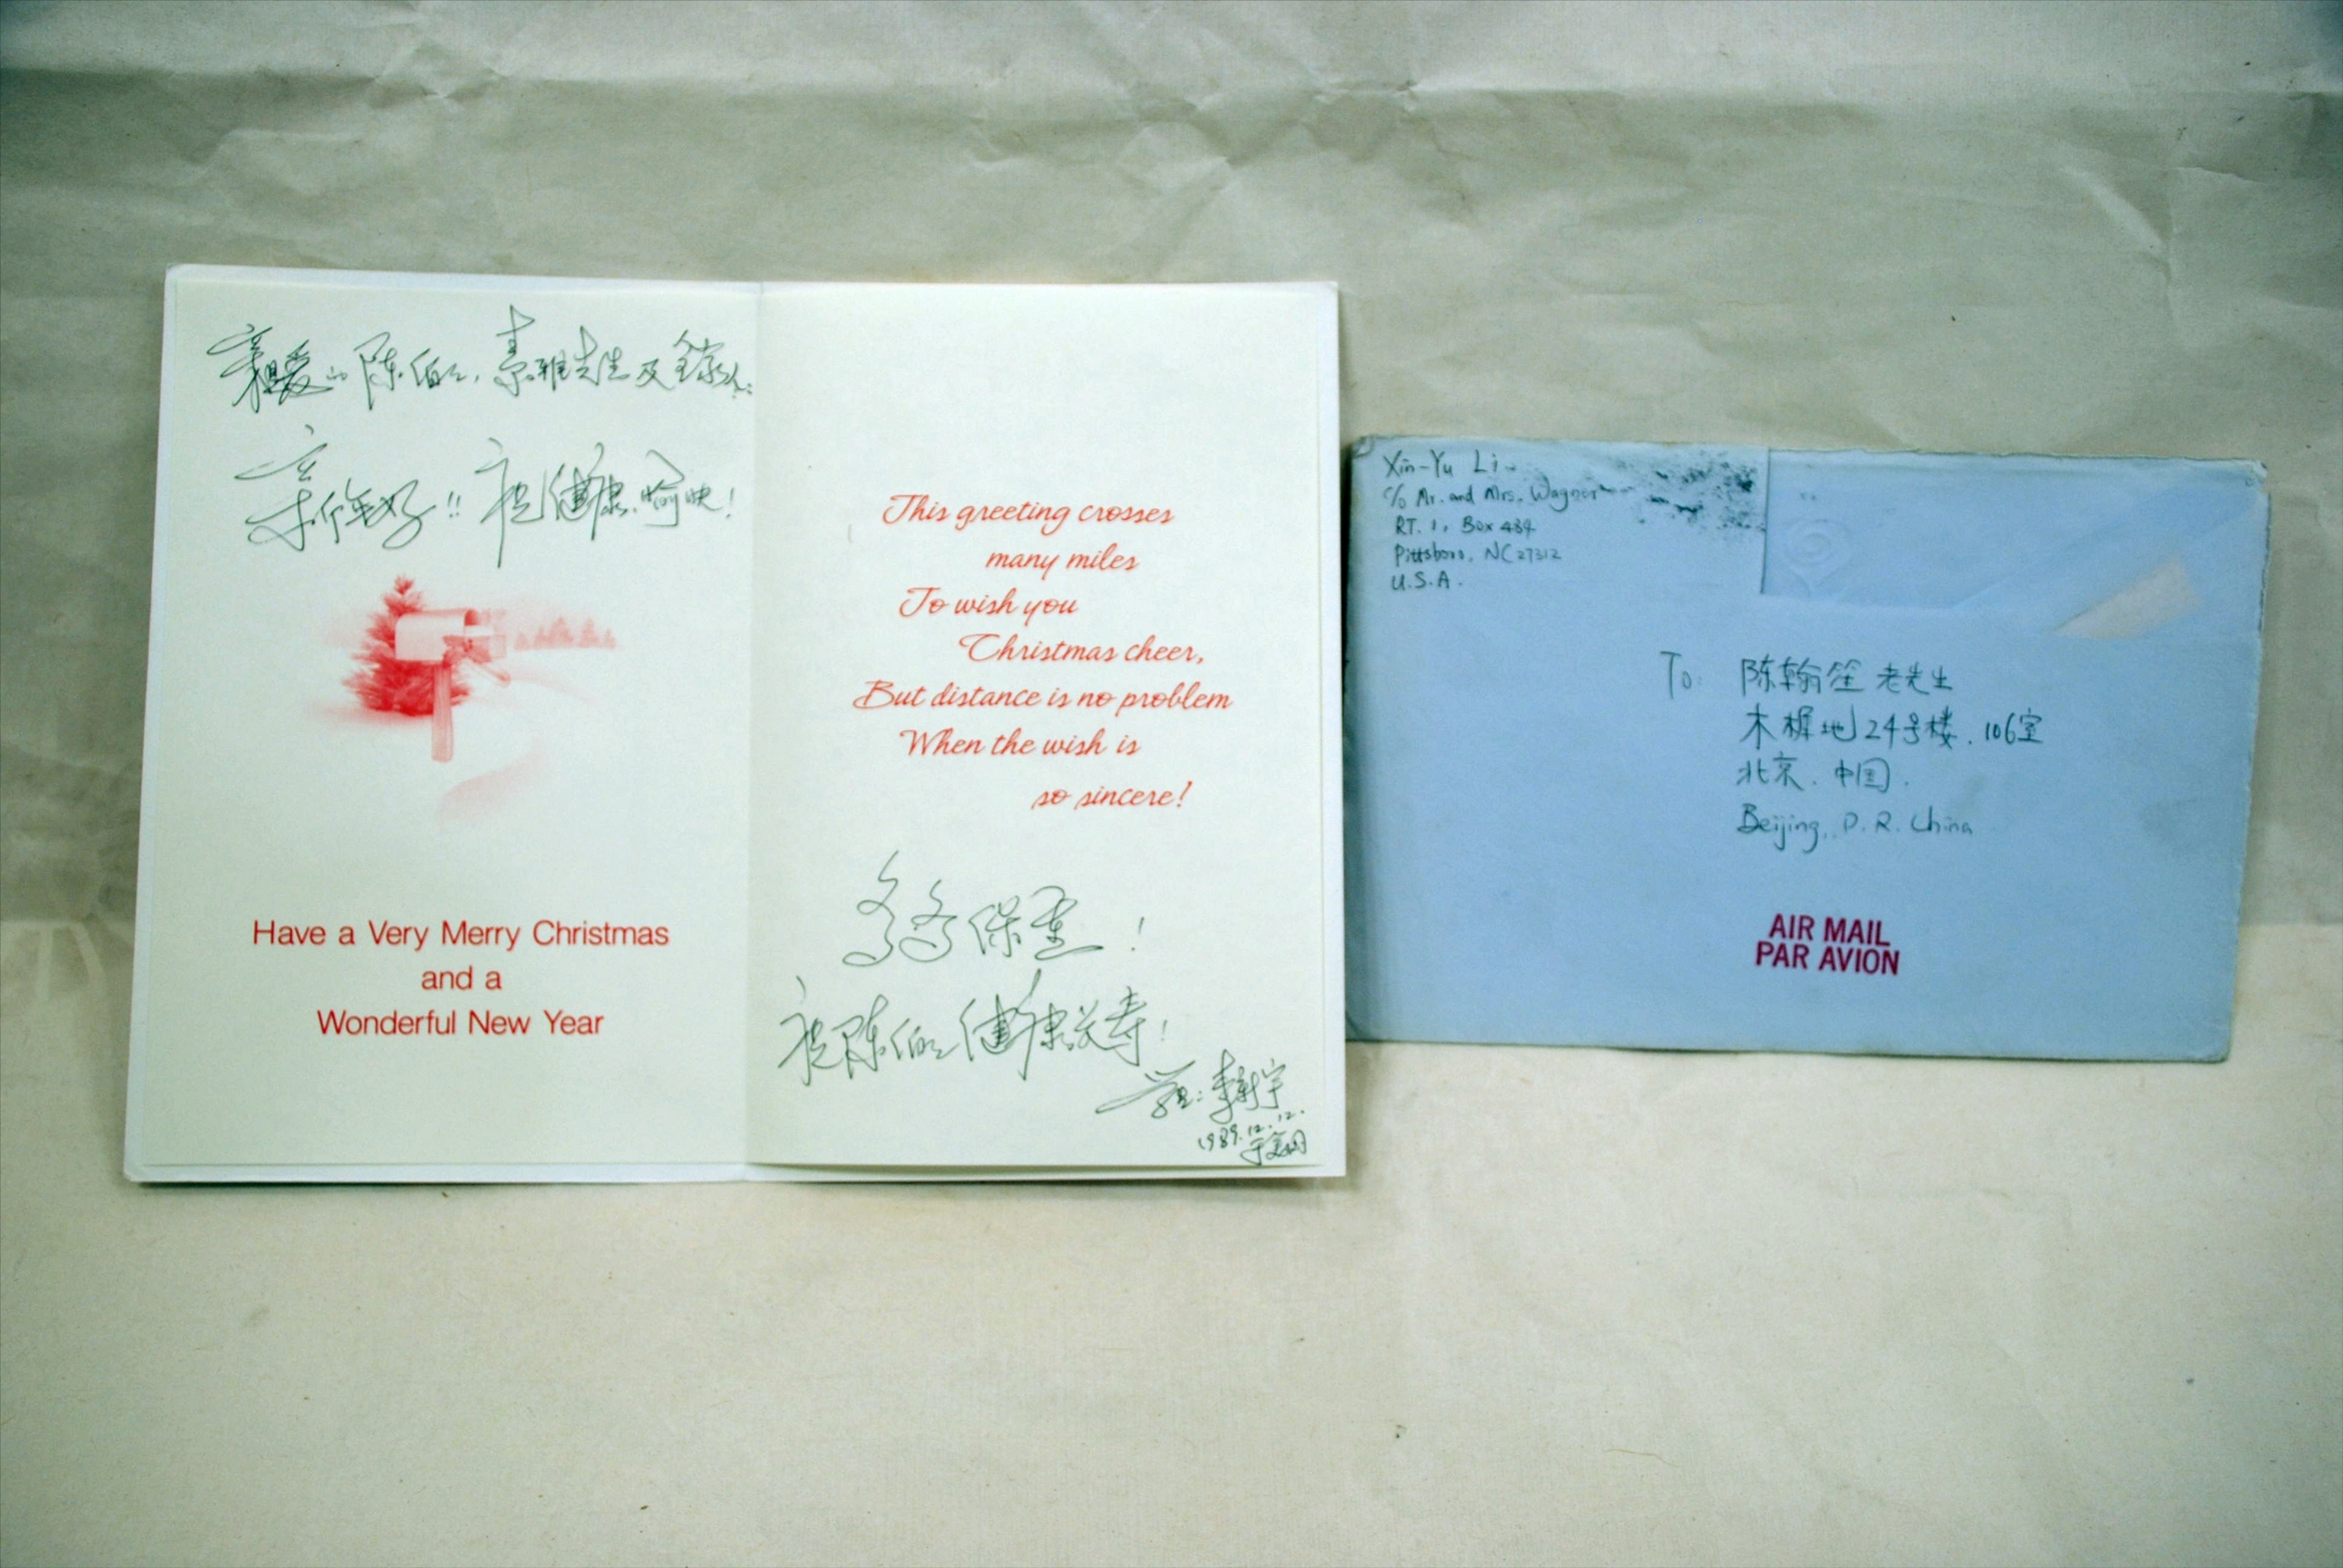 親爱的陈伯伯，素雅先生及全家人：
新年好!! 祝健康、愉快!
Have a Very Merry Christmas
and a
Wonderful New Year
This greeting crosses
many miles
To wish you
Christmas cheer,
But distance is no problem
When the wish is
so sincere!
多多保重!
祝陈伯伯健康长寿!
李新宇
1989.12.12.
Xin-Yu Li
c/o Mr. and Mrs. Wagner
RT. 1, Box 484
Pittsboro, NC 27312
U.S.A.
To: 陈翰笙 老先生
木樨地24号楼.106室
北京.中国.
Beijing, P.R. China
AIR MAIL
PAR AVION